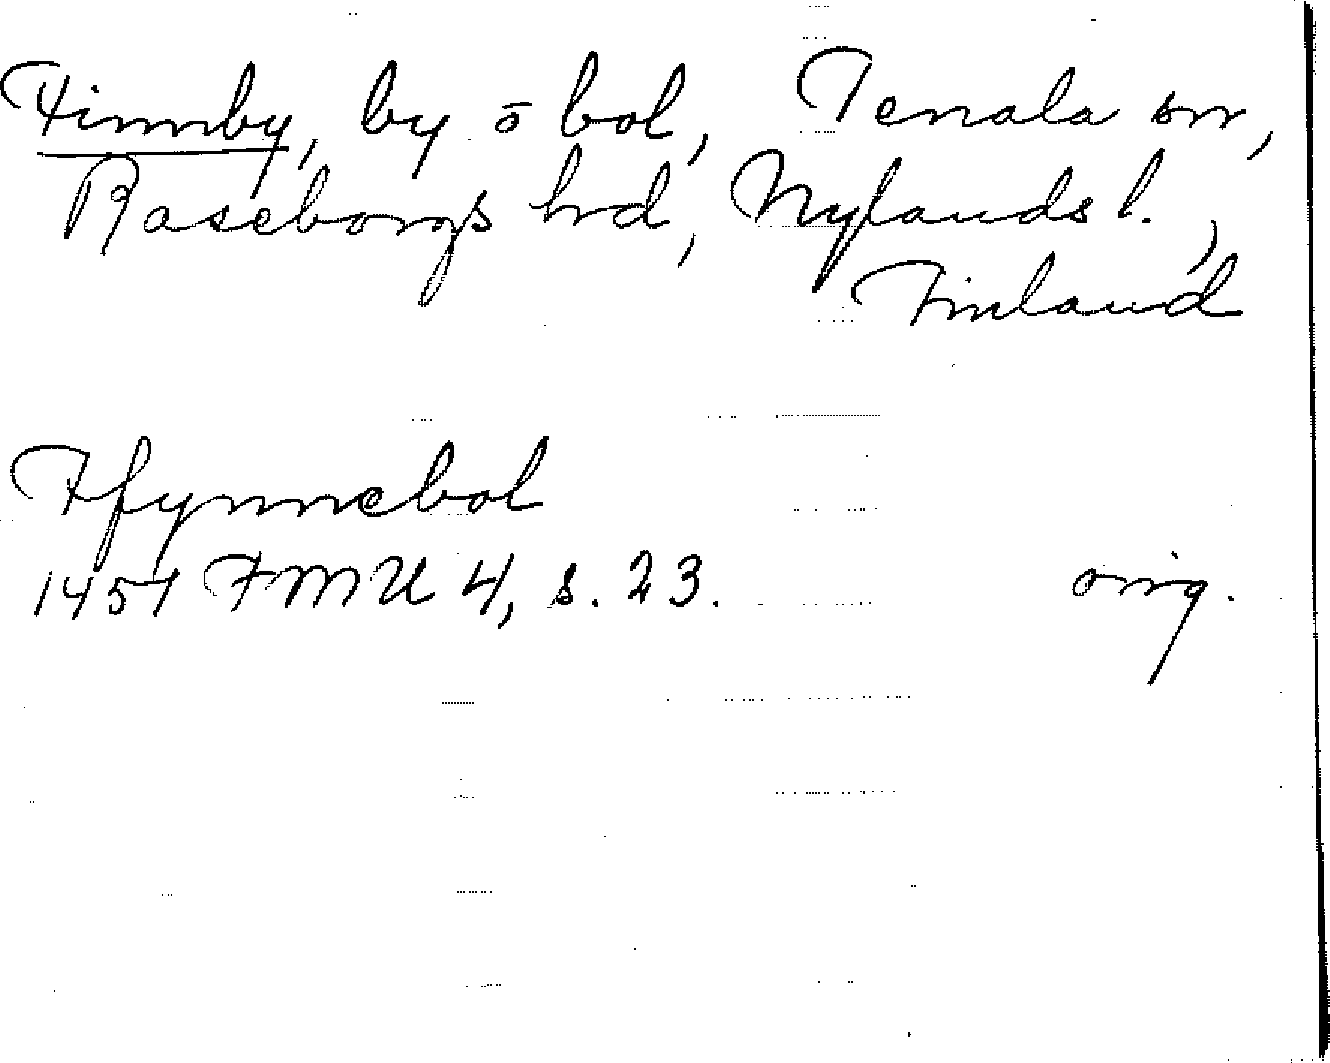 Finnby, by o bol, Tenala sn,
Raseborgs hrd, Nylands l.,
Finland
Ffynnebol
1451 FMU 4, s. 23. orig.